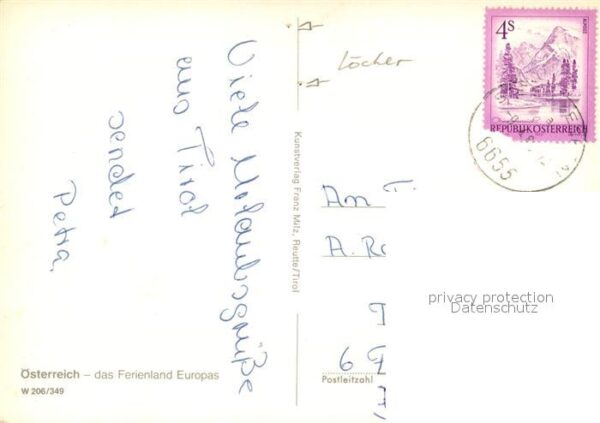 Viele Urlaubsgrüße
aus Tirol
sendet
Petra.
Österreich – das Ferienland Europas
W 206/349
Kunstverlag Franz Milz, Reutte/Tirol
Löcher
4S
REPUBLIK ÖSTERREICH
6655
Am T
A. Ro
6
Postleitzahl
privacy protection
Datenschutz